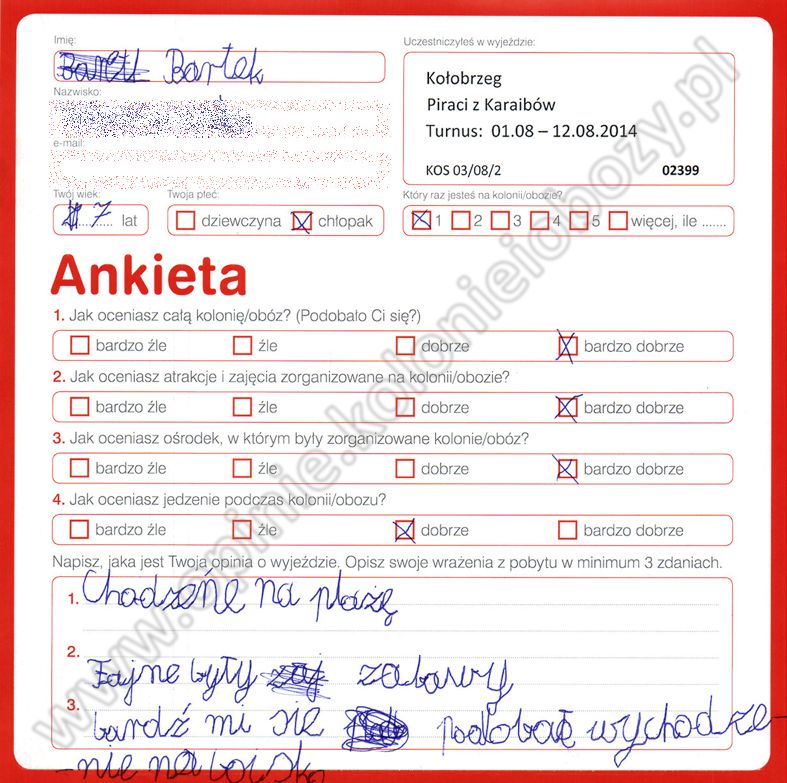 Imię:
Bartek
Uczestniczyłeś w wyjeździe:
Kołobrzeg
Piraci z Karaibów
Turnus: 01.08 – 12.08.2014
KOS 03/08/2 02399
Nazwisko:
e-mail:
Twój wiek:
7 lat
Twoja płeć:
dziewczyna chłopak
Który raz jesteś na kolonii/obozie?
1 2 3 4 5 więcej, ile .......
Ankieta
1. Jak oceniasz całą kolonię/obóz? (Podobało Ci się?)
bardzo źle źle dobrze bardzo dobrze
2. Jak oceniasz atrakcje i zajęcia zorganizowane na kolonii/obozie?
bardzo źle źle dobrze bardzo dobrze
3. Jak oceniasz ośrodek, w którym były zorganizowane kolonie/obóz?
bardzo źle źle dobrze bardzo dobrze
4. Jak oceniasz jedzenie podczas kolonii/obozu?
bardzo źle źle dobrze bardzo dobrze
Napisz, jaka jest Twoja opinia o wyjeździe. Opisz swoje wrażenia z pobytu w minimum 3 zdaniach.
1. Chodzeńe na plażę
2. Fajne były zabawy
3. bardź mi się podobać wychodze-
-nie na boisko
www.opinie.kolonieiobozy.pl